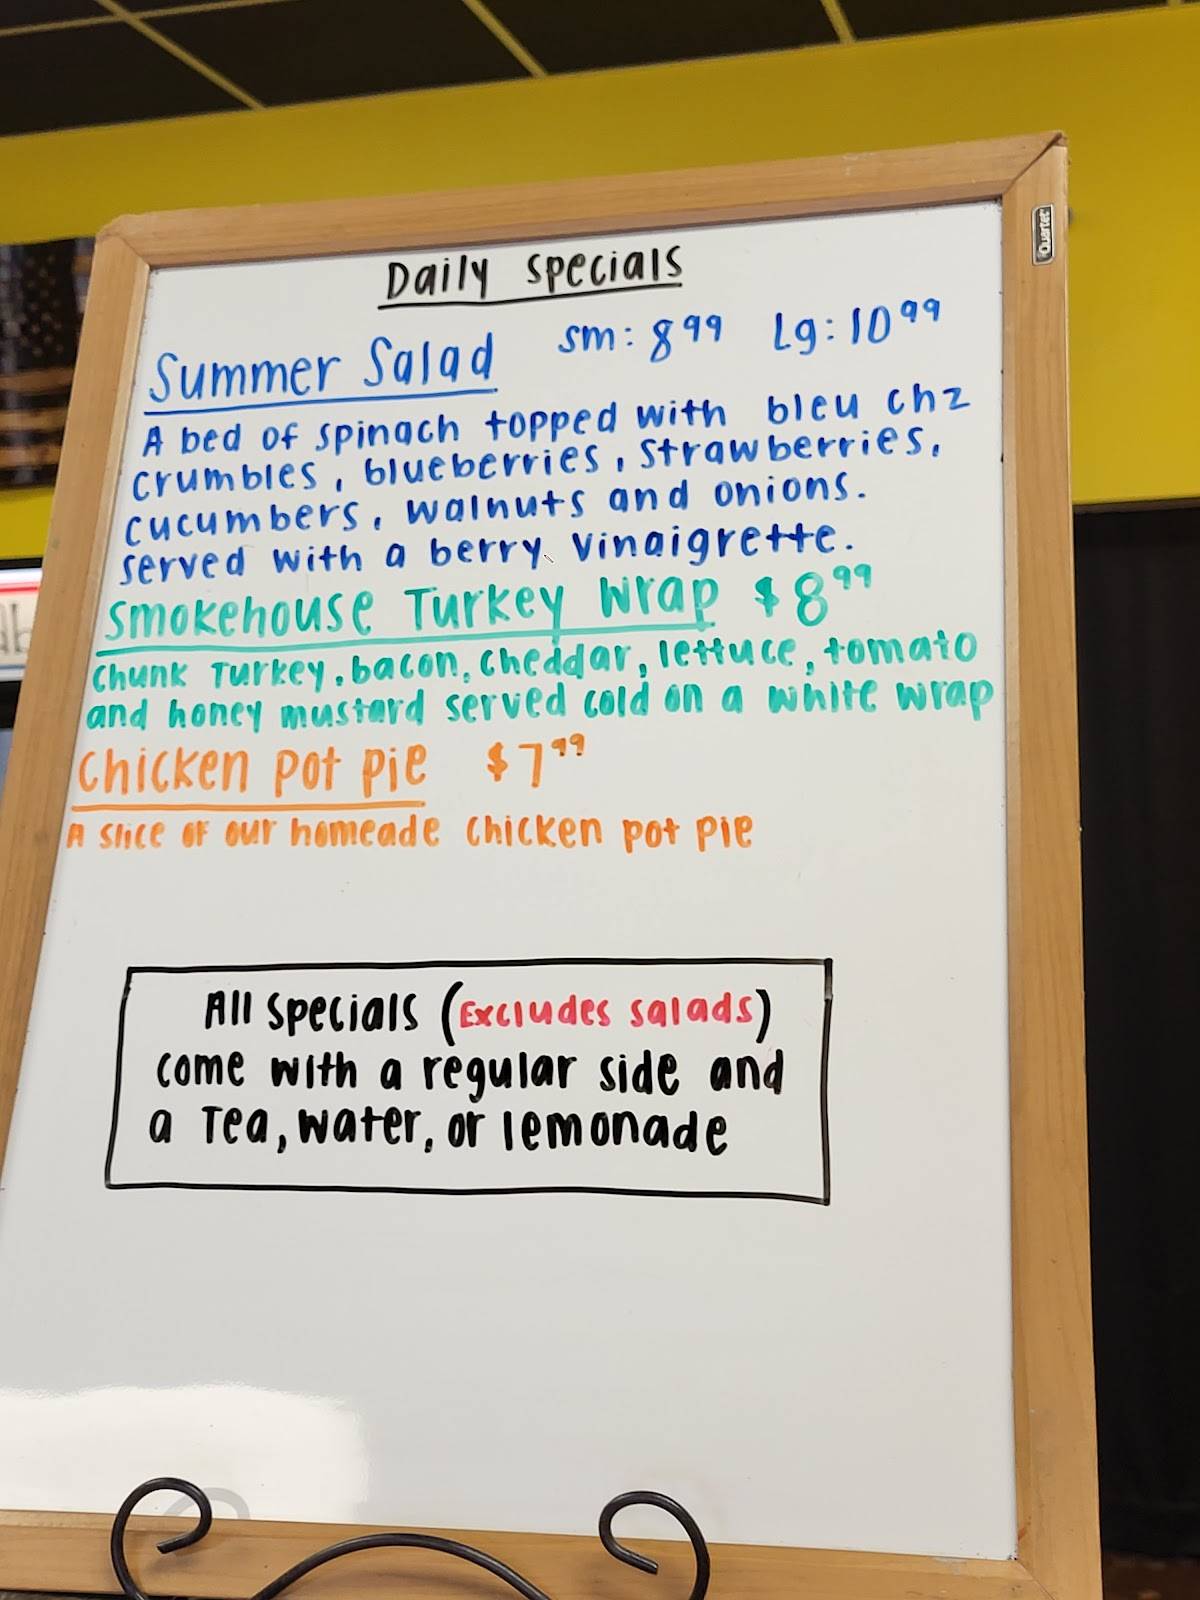 Quartet
Daily Specials
Summer Salad sm: 8.99 Lg: 10.99
A bed of spinach topped with bleu chz
crumbles, blueberries, strawberries,
cucumbers, walnuts and onions.
served with a berry vinaigrette.
Smokehouse Turkey Wrap $8.99
Chunk Turkey, bacon, cheddar, lettuce, tomato
and honey mustard served cold on a white wrap
Chicken pot pie $7.99
A slice of our homeade chicken pot pie
All specials (Excludes salads)
come with a regular side and
a Tea, water, or lemonade